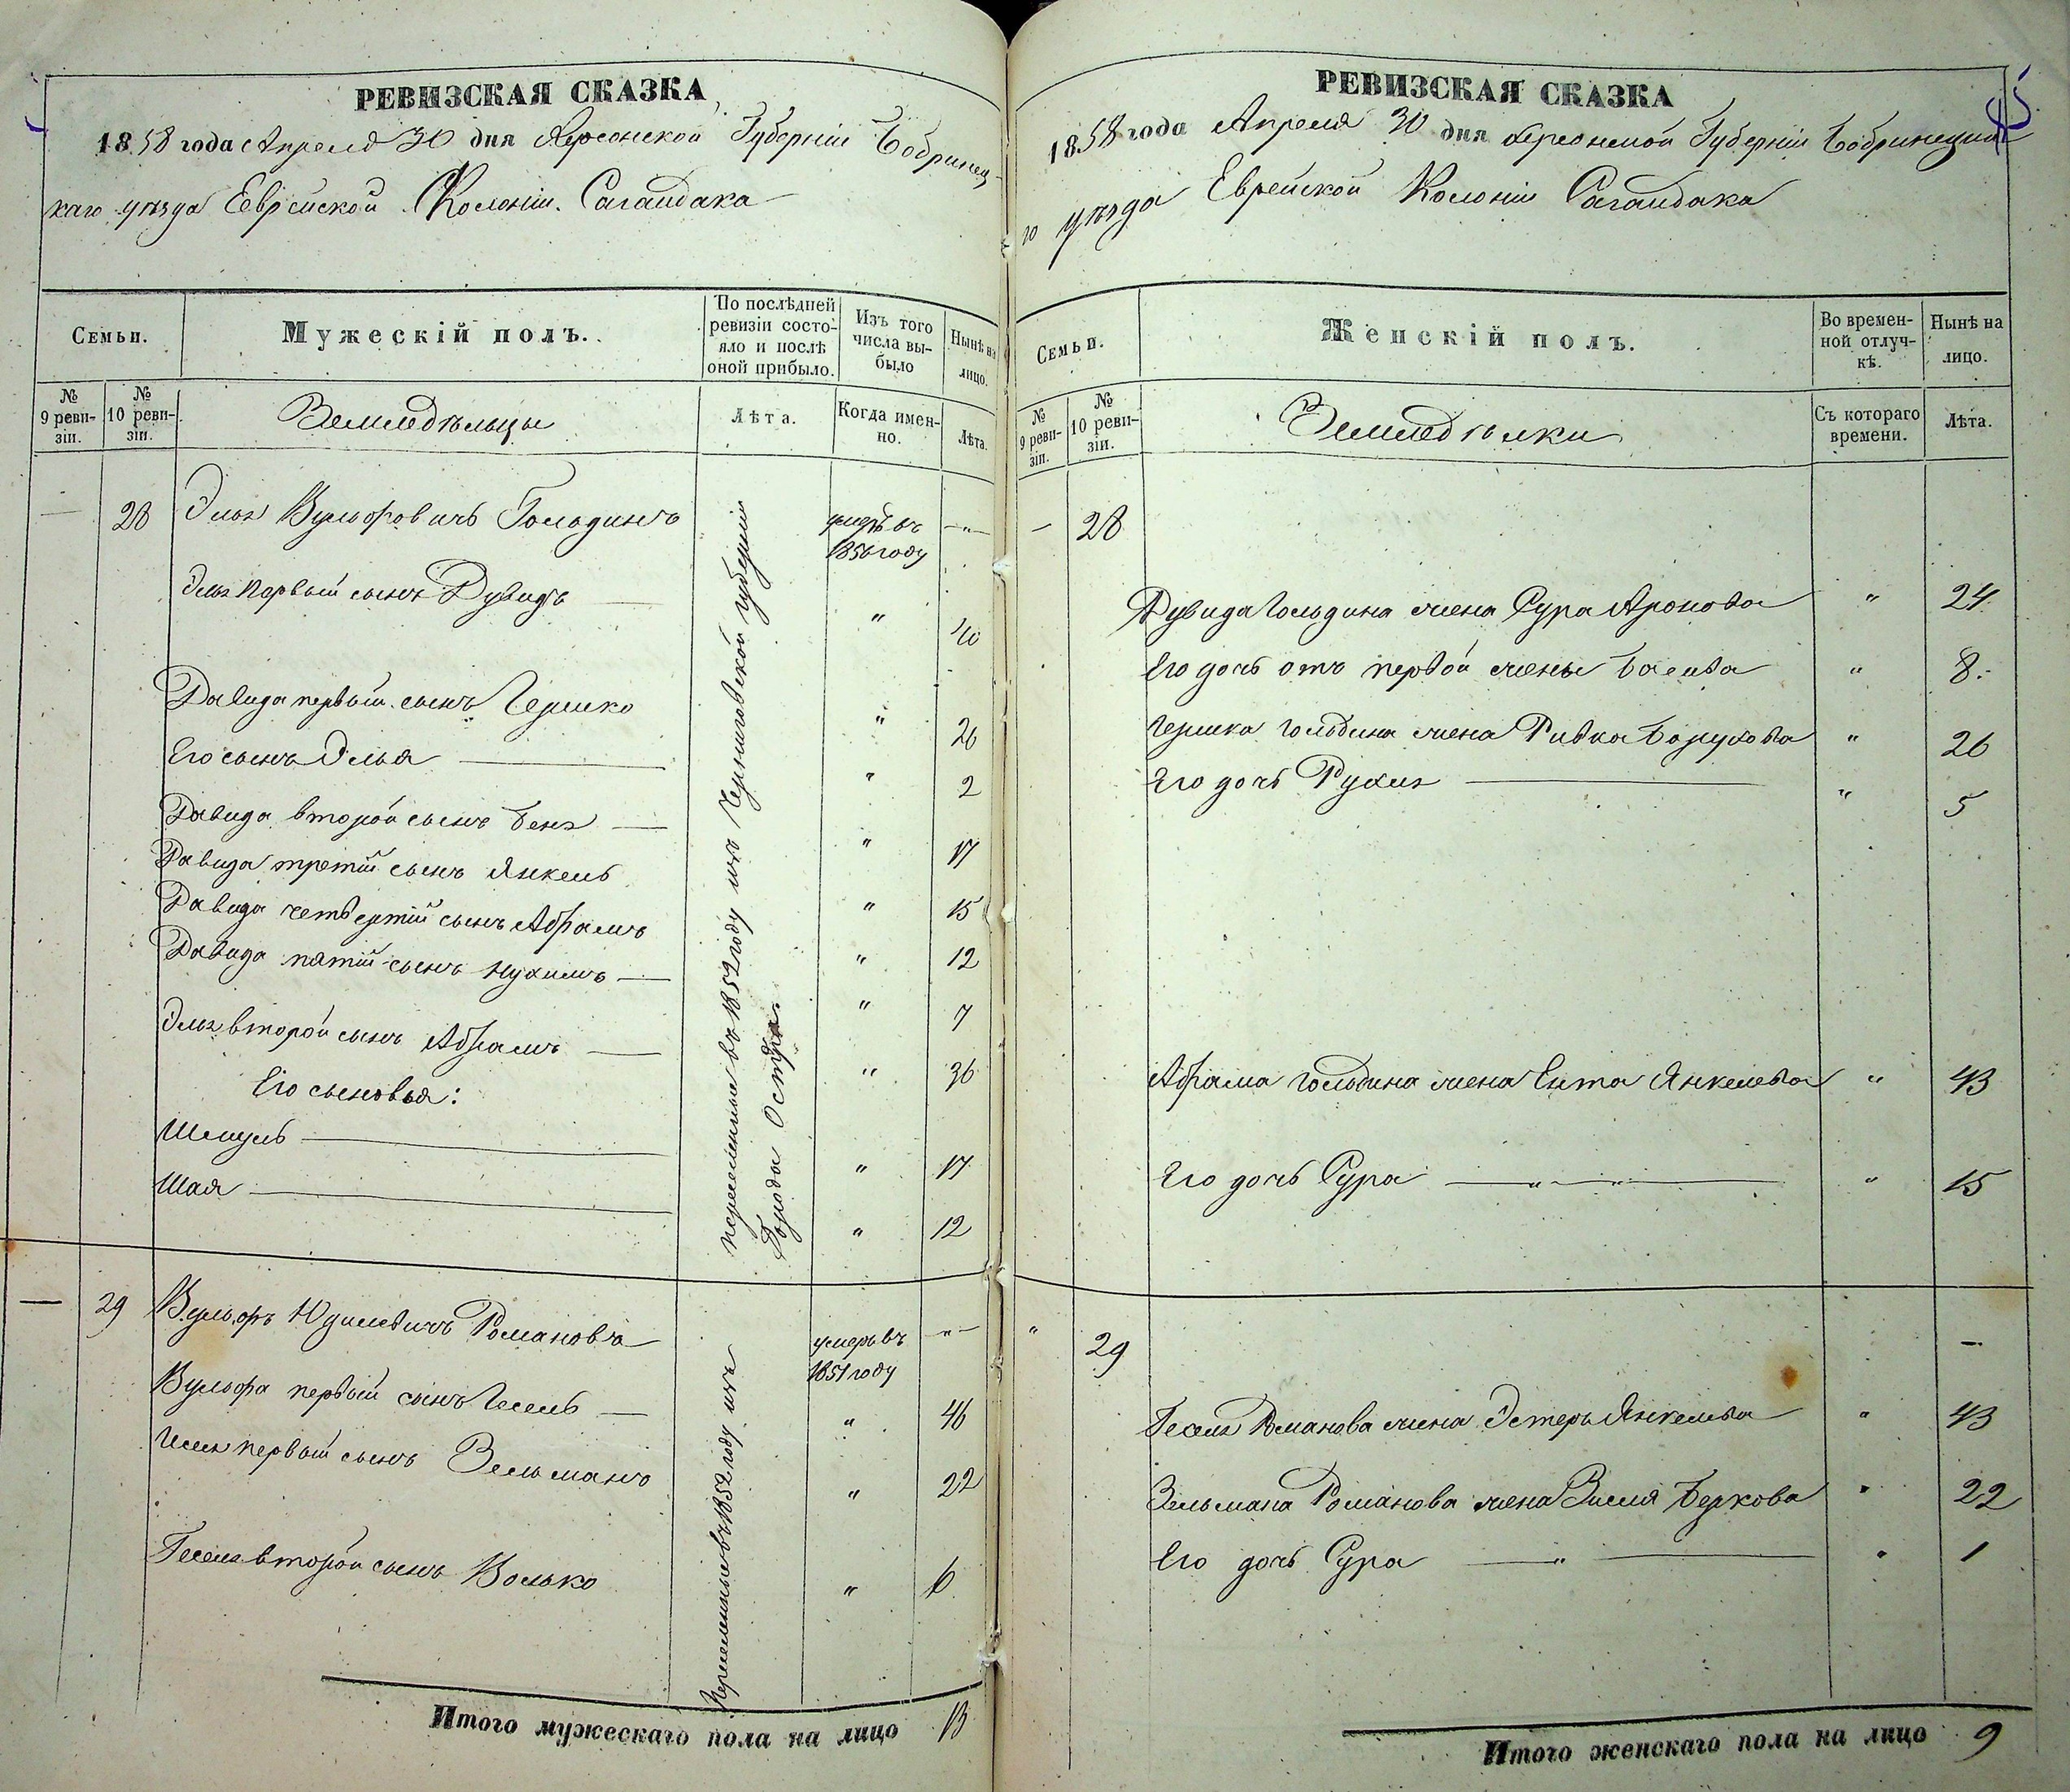 РЕВИЗСКАЯ СКАЗКА
1858 года Апреля 30 дня Херсонской Губерніи Бобринец-
каго уѣзда Еврейской Колоніи Сагайдака
Семьи.
Мужескій полъ.
По послѣдней ревизіи состо-
яло и послѣ оной прибыло.
Изъ того числа вы-
было
Нынѣ на лицо.
№ 9 реви-
зіи.
№ 10 реви-
зіи.
Земледѣльцы
Лѣта.
Когда имен-
но.
Лѣта.
— 28 Эльи Вульфовичъ Гольдинъ умеръ въ 1856 году — " —
переселенные въ 1852 году изъ Черниговской губерніи
Города Остра.
Эльи первый сынъ Дувидъ — " 40
Давида первый сынъ Гершко " 26
Его сынъ Элья — " 2
Давида второй сынъ Бенз — " 17
Давида третій сынъ Янкель " 15
Давида четвертый сынъ Абрамъ " 12
Давида пятый сынъ Нухимъ — " 7
Эльи второй сынъ Абрамъ — " 36
Его сыновья:
Шмуль — " 17
Шая — " 12
— 29 Вульфъ Юдилевичъ Романовъ умеръ въ 1851 году — " —
Переселенные въ 1852 году изъ
Вульфа первый сынъ Гесель — " 46
первый сынъ Зельманъ " 22
Геселя второй сынъ Волько " 6
Итого мужескаго пола на лицо 13
РЕВИЗСКАЯ СКАЗКА
1858 года Апреля 30 дня Херсонской Губерніи Бобринецка-
го уѣзда Еврейской Колоніи Сагайдака
Семьи.
Женскій полъ.
Во времен-
ной отлуч-
кѣ.
Нынѣ на лицо.
№ 9 реви-
зіи.
№ 10 реви-
зіи.
Земледѣлки
Съ котораго времени.
Лѣта.
— 28
Дувида Гольдина жена Сура Аронова " 24
Его дочь отъ первой жены Басива " 8
Гершка Гольдина жена Ривка Борухова " 26
Его дочь Рухля — " 5
Абрама Гольдина жена Ента Янкелева " 43
Его дочь Сура — " — " — " 15
" 29 —
Геселя Романова жена Эстеръ Янкелева " 43
Зельмана Романова жена Зисля Беркова " 22
Его дочь Сура — " — " 1
Итого женскаго пола на лицо 9